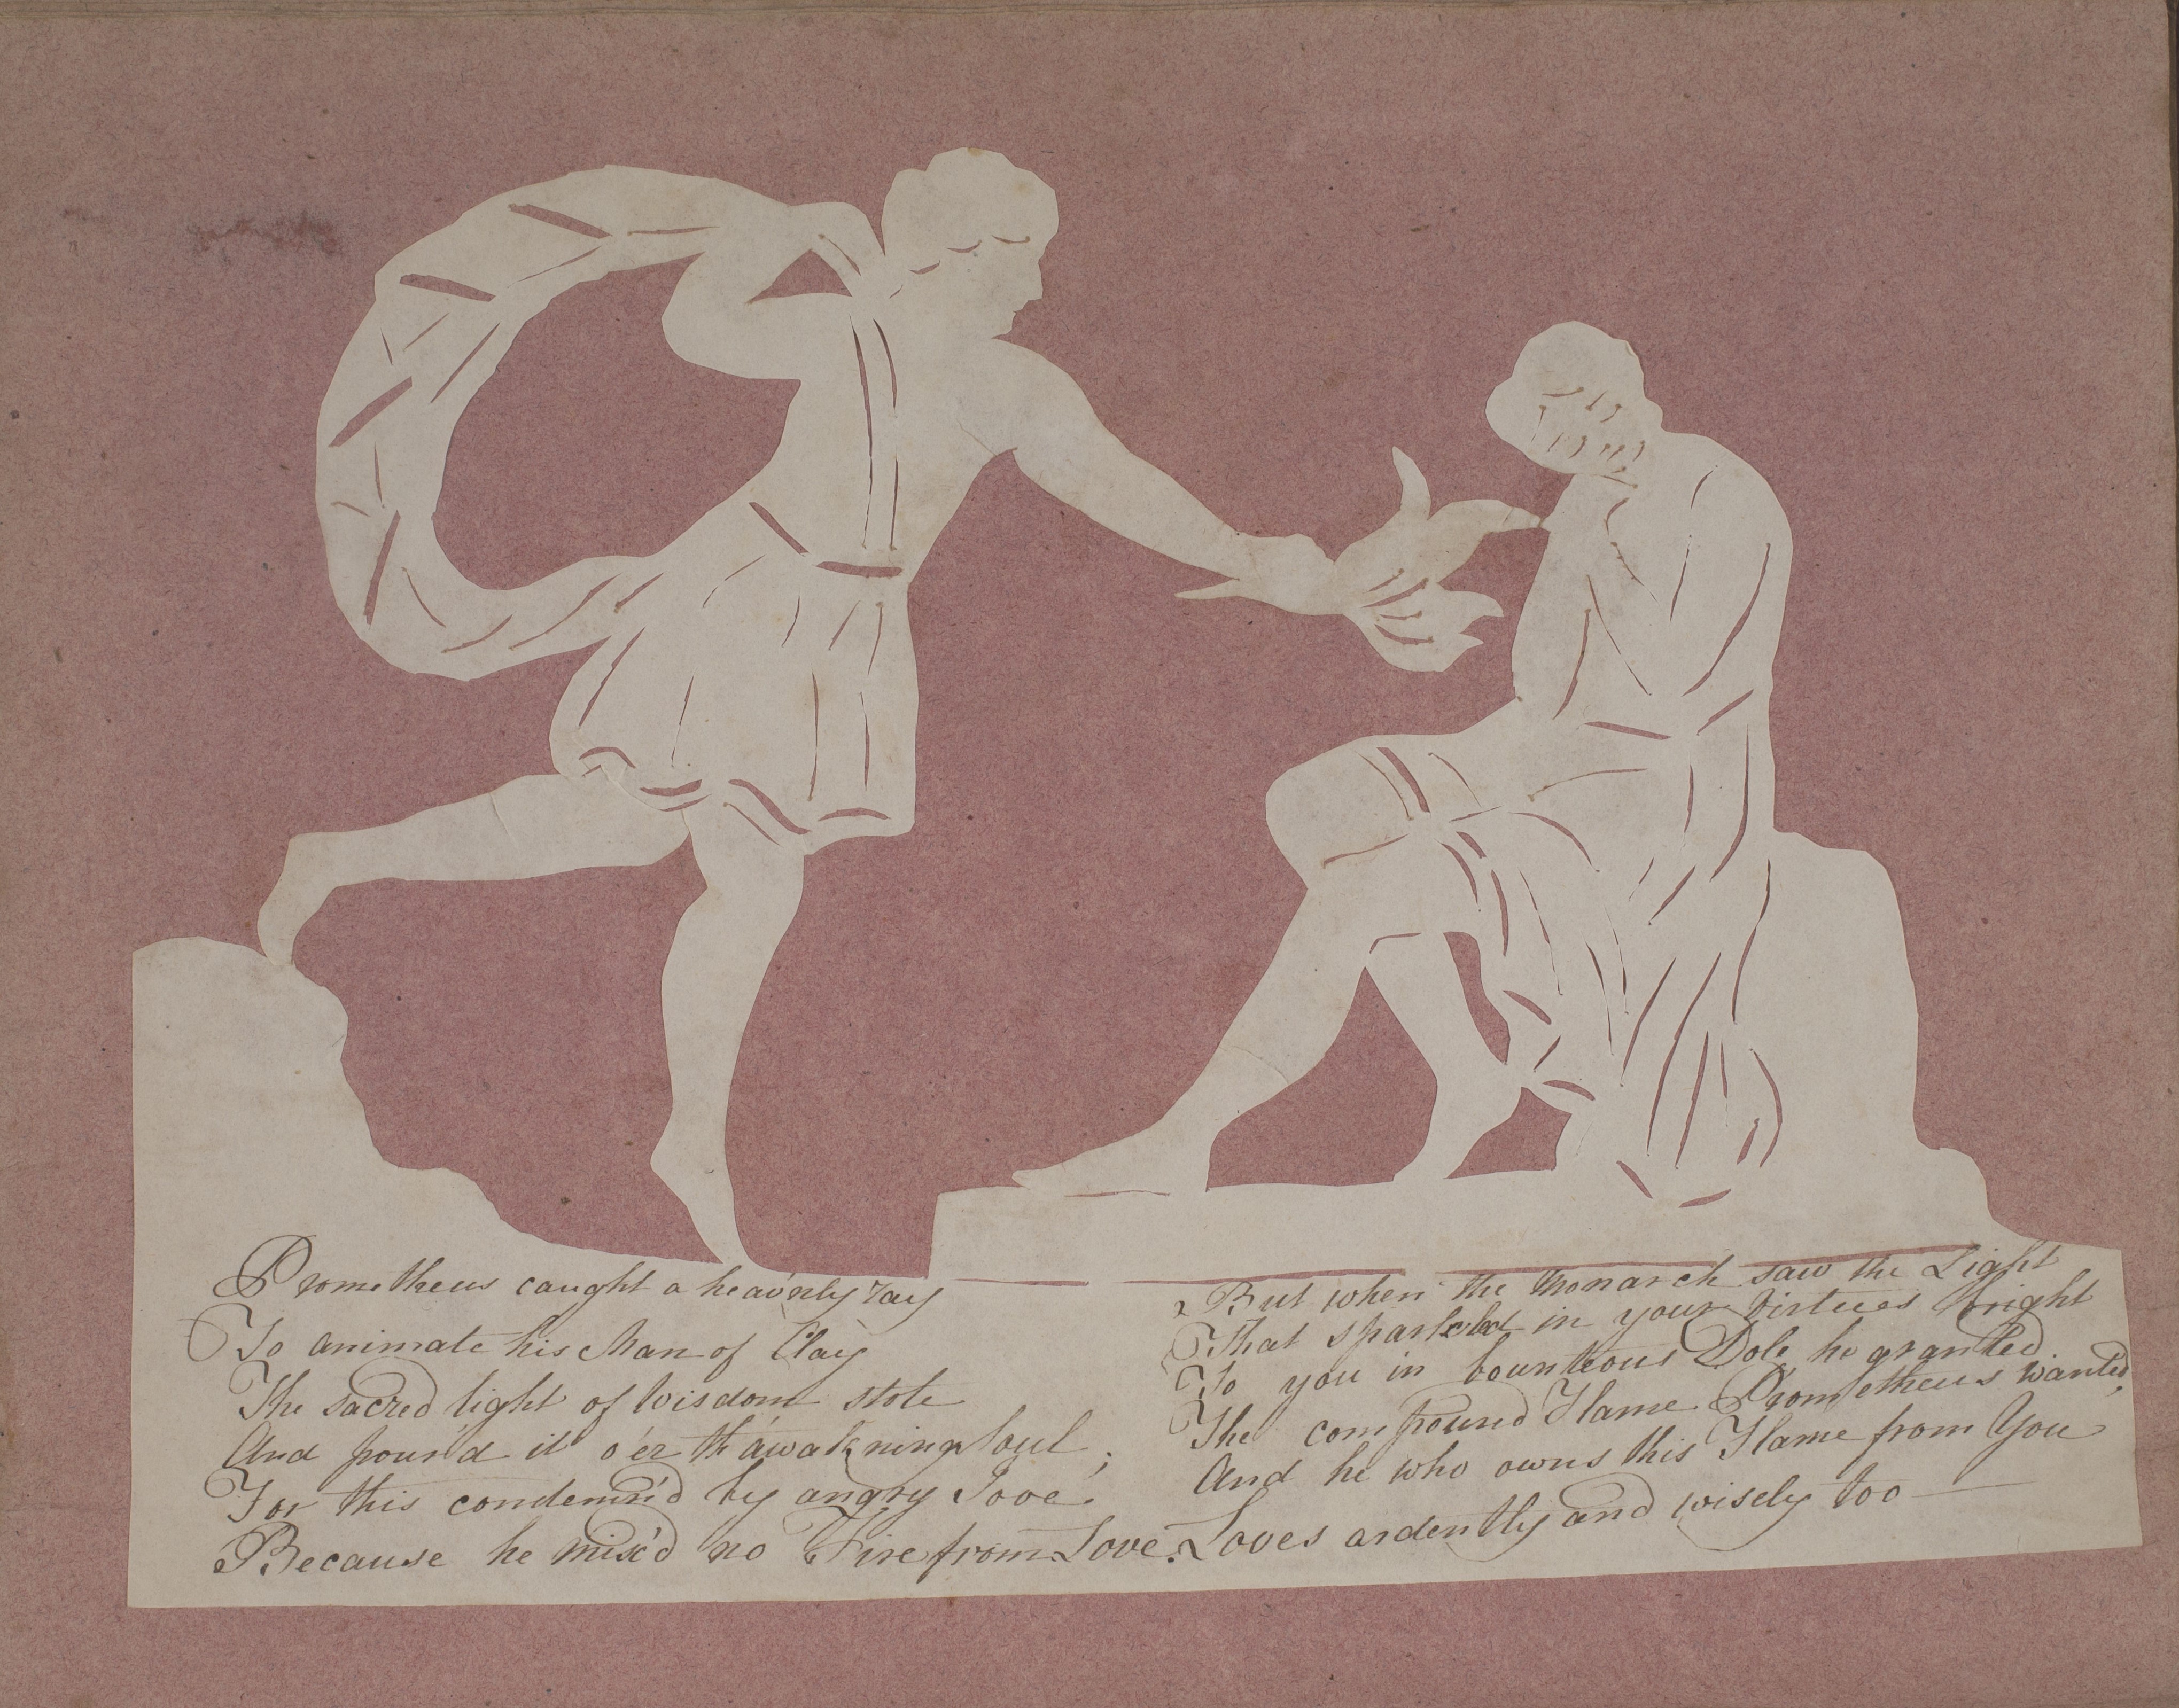 Prometheus caught a heav'nly ray
To animate his Man of Clay
The sacred light of Wisdom stole
And pour'd it o'er th' awak'ning Soul;
For this condemn'd by angry Jove,
Because he mix'd no Fire from Love.
But when the Monarch saw the Light
That sparkled in your Virtues bright
To you in bounteous Dole he granted
The compound Flame Prometheus wanted,
And he who owns this Flame from You
Loves ardently and wisely too —